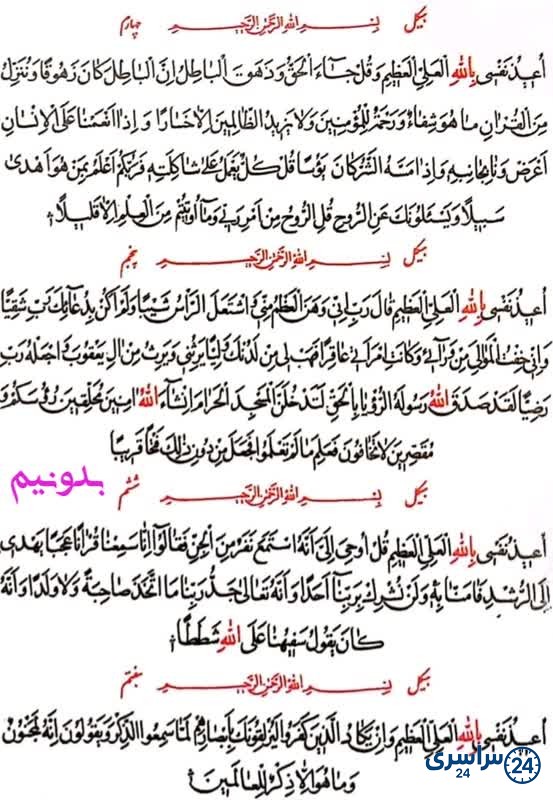 هیکل بِسْمِ اللهِ الرَّحْمٰنِ الرَّحِیمِ چهارم
اُعیذُ نَفْسی بِاللهِ الْعَلِیِّ الْعَظیمِ وَقُلْ جآءَ الْحَقُّ وَزَهَقَ الْباطِلُ اِنَّ الْباطِلَ کانَ زَهُوقًا وَنُنَزِّلُ
مِنَ الْقُرْانِ ما هُوَ شِفآءٌ وَرَحْمَةٌ لِلْمُؤْمِنینَ وَلا یَزیدُ الظّالِمینَ اِلّا خَسارًا وَاِذا اَنْعَمْنا عَلَی الْاِنْسانِ
اَعْرَضَ وَنَا بِجانِبِهِ وَاِذا مَسَّهُ الشَّرُّ کانَ یَؤُسًا قُلْ کُلٌّ یَعْمَلُ عَلٰی شاکِلَتِهِ فَرَبُّکُمْ اَعْلَمُ بِمَنْ هُوَ اَهْدی
سَبیلًا وَیَسْئَلُونَکَ عَنِ الرُّوحِ قُلِ الرُّوحُ مِنْ اَمْرِ رَبّی وَمآ اُوتیتُمْ مِنَ الْعِلْمِ اِلّا قَلیلًا
هیکل بِسْمِ اللهِ الرَّحْمٰنِ الرَّحِیمِ پنجم
اُعیذُ نَفْسی بِاللهِ الْعَلِیِّ الْعَظیمِ قالَ رَبِّ اِنّی وَهَنَ الْعَظْمُ مِنّی وَاشْتَعَلَ الرَّاْسُ شَیْبًا وَلَمْ اَکُنْ بِدُعآئِکَ رَبِّ شَقِیًّا
وَاِنّی خِفْتُ الْمَوالِیَ مِنْ وَرآئی وَکانَتِ امْرَاَتی عاقِرًا فَهَبْ لی مِنْ لَدُنْکَ وَلِیًّا یَرِثُنی وَیَرِثُ مِنْ الِ یَعْقُوبَ وَاجْعَلْهُ رَبِّ
رَضِیًّا لَقَدْ صَدَقَ اللهُ رَسُولَهُ الرُّؤْیا بِالْحَقِّ لَتَدْخُلُنَّ الْمَسْجِدَ الْحَرامَ اِنْ شآءَ اللهُ امِنینَ مُحَلِّقینَ رُؤُسَکُمْ وَ
مُقَصِّرینَ لا تَخافُونَ فَعَلِمَ ما لَمْ تَعْلَمُوا فَجَعَلَ مِنْ دُونِ ذٰلِکَ فَتْحًا قَریبًا
بدونیم
هیکل بِسْمِ اللهِ الرَّحْمٰنِ الرَّحِیمِ ششم
اُعیذُ نَفْسی بِاللهِ الْعَلِیِّ الْعَظیمِ قُلْ اُوحِیَ اِلَیَّ اَنَّهُ اسْتَمَعَ نَفَرٌ مِنَ الْجِنِّ فَقالُوا اِنّا سَمِعْنا قُرْانًا عَجَبًا یَهْدی
اِلَی الرُّشْدِ فَامَنّا بِهِ وَلَنْ نُشْرِکَ بِرَبِّنا اَحَدًا وَاَنَّهُ تَعالی جَدُّ رَبِّنا مَا اتَّخَذَ صاحِبَةً وَلا وَلَدًا وَاَنَّهُ
کانَ یَقُولُ سَفیهُنا عَلَی اللهِ شَطَطًا
هیکل بِسْمِ اللهِ الرَّحْمٰنِ الرَّحِیمِ هفتم
اُعیذُ نَفْسی بِاللهِ الْعَلِیِّ الْعَظیمِ وَاِنْ یَکادُ الَّذینَ کَفَرُوا لَیُزْلِقُونَکَ بِاَبْصارِهِمْ لَمّا سَمِعُوا الذِّکْرَ وَیَقُولُونَ اِنَّهُ لَمَجْنُونٌ
وَما هُوَ اِلّا ذِکْرٌ لِلْعالَمینَ
سراسری 24
24